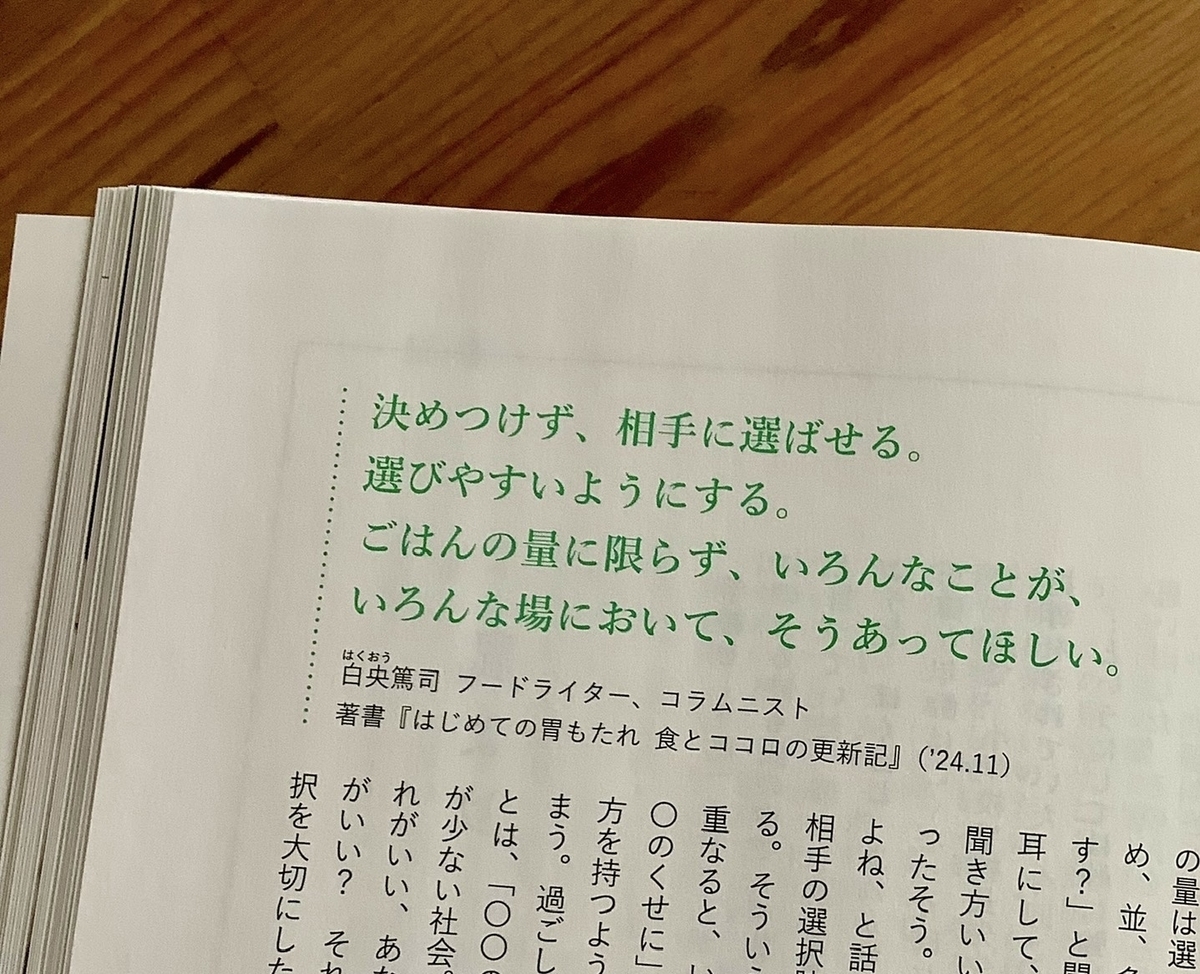 決めつけず、相手に選ばせる。
選びやすいようにする。
ごはんの量に限らず、いろんなことが、
いろんな場において、そうあってほしい。
はくおう
白央篤司 フードライター、コラムニスト
著書『はじめての胃もたれ 食とココロの更新記』（’24.11）
の量は選
め、並、
す？」と聞
耳にして、
聞き方いい
ったそう。
よね、と話
相手の選択肢
る。そういう
重なると、い
〇のくせに」
方を持つよう
まう。過ごし
とは、「〇〇の
が少ない社会。
れがいい、あな
がいい？ それ
択を大切にした